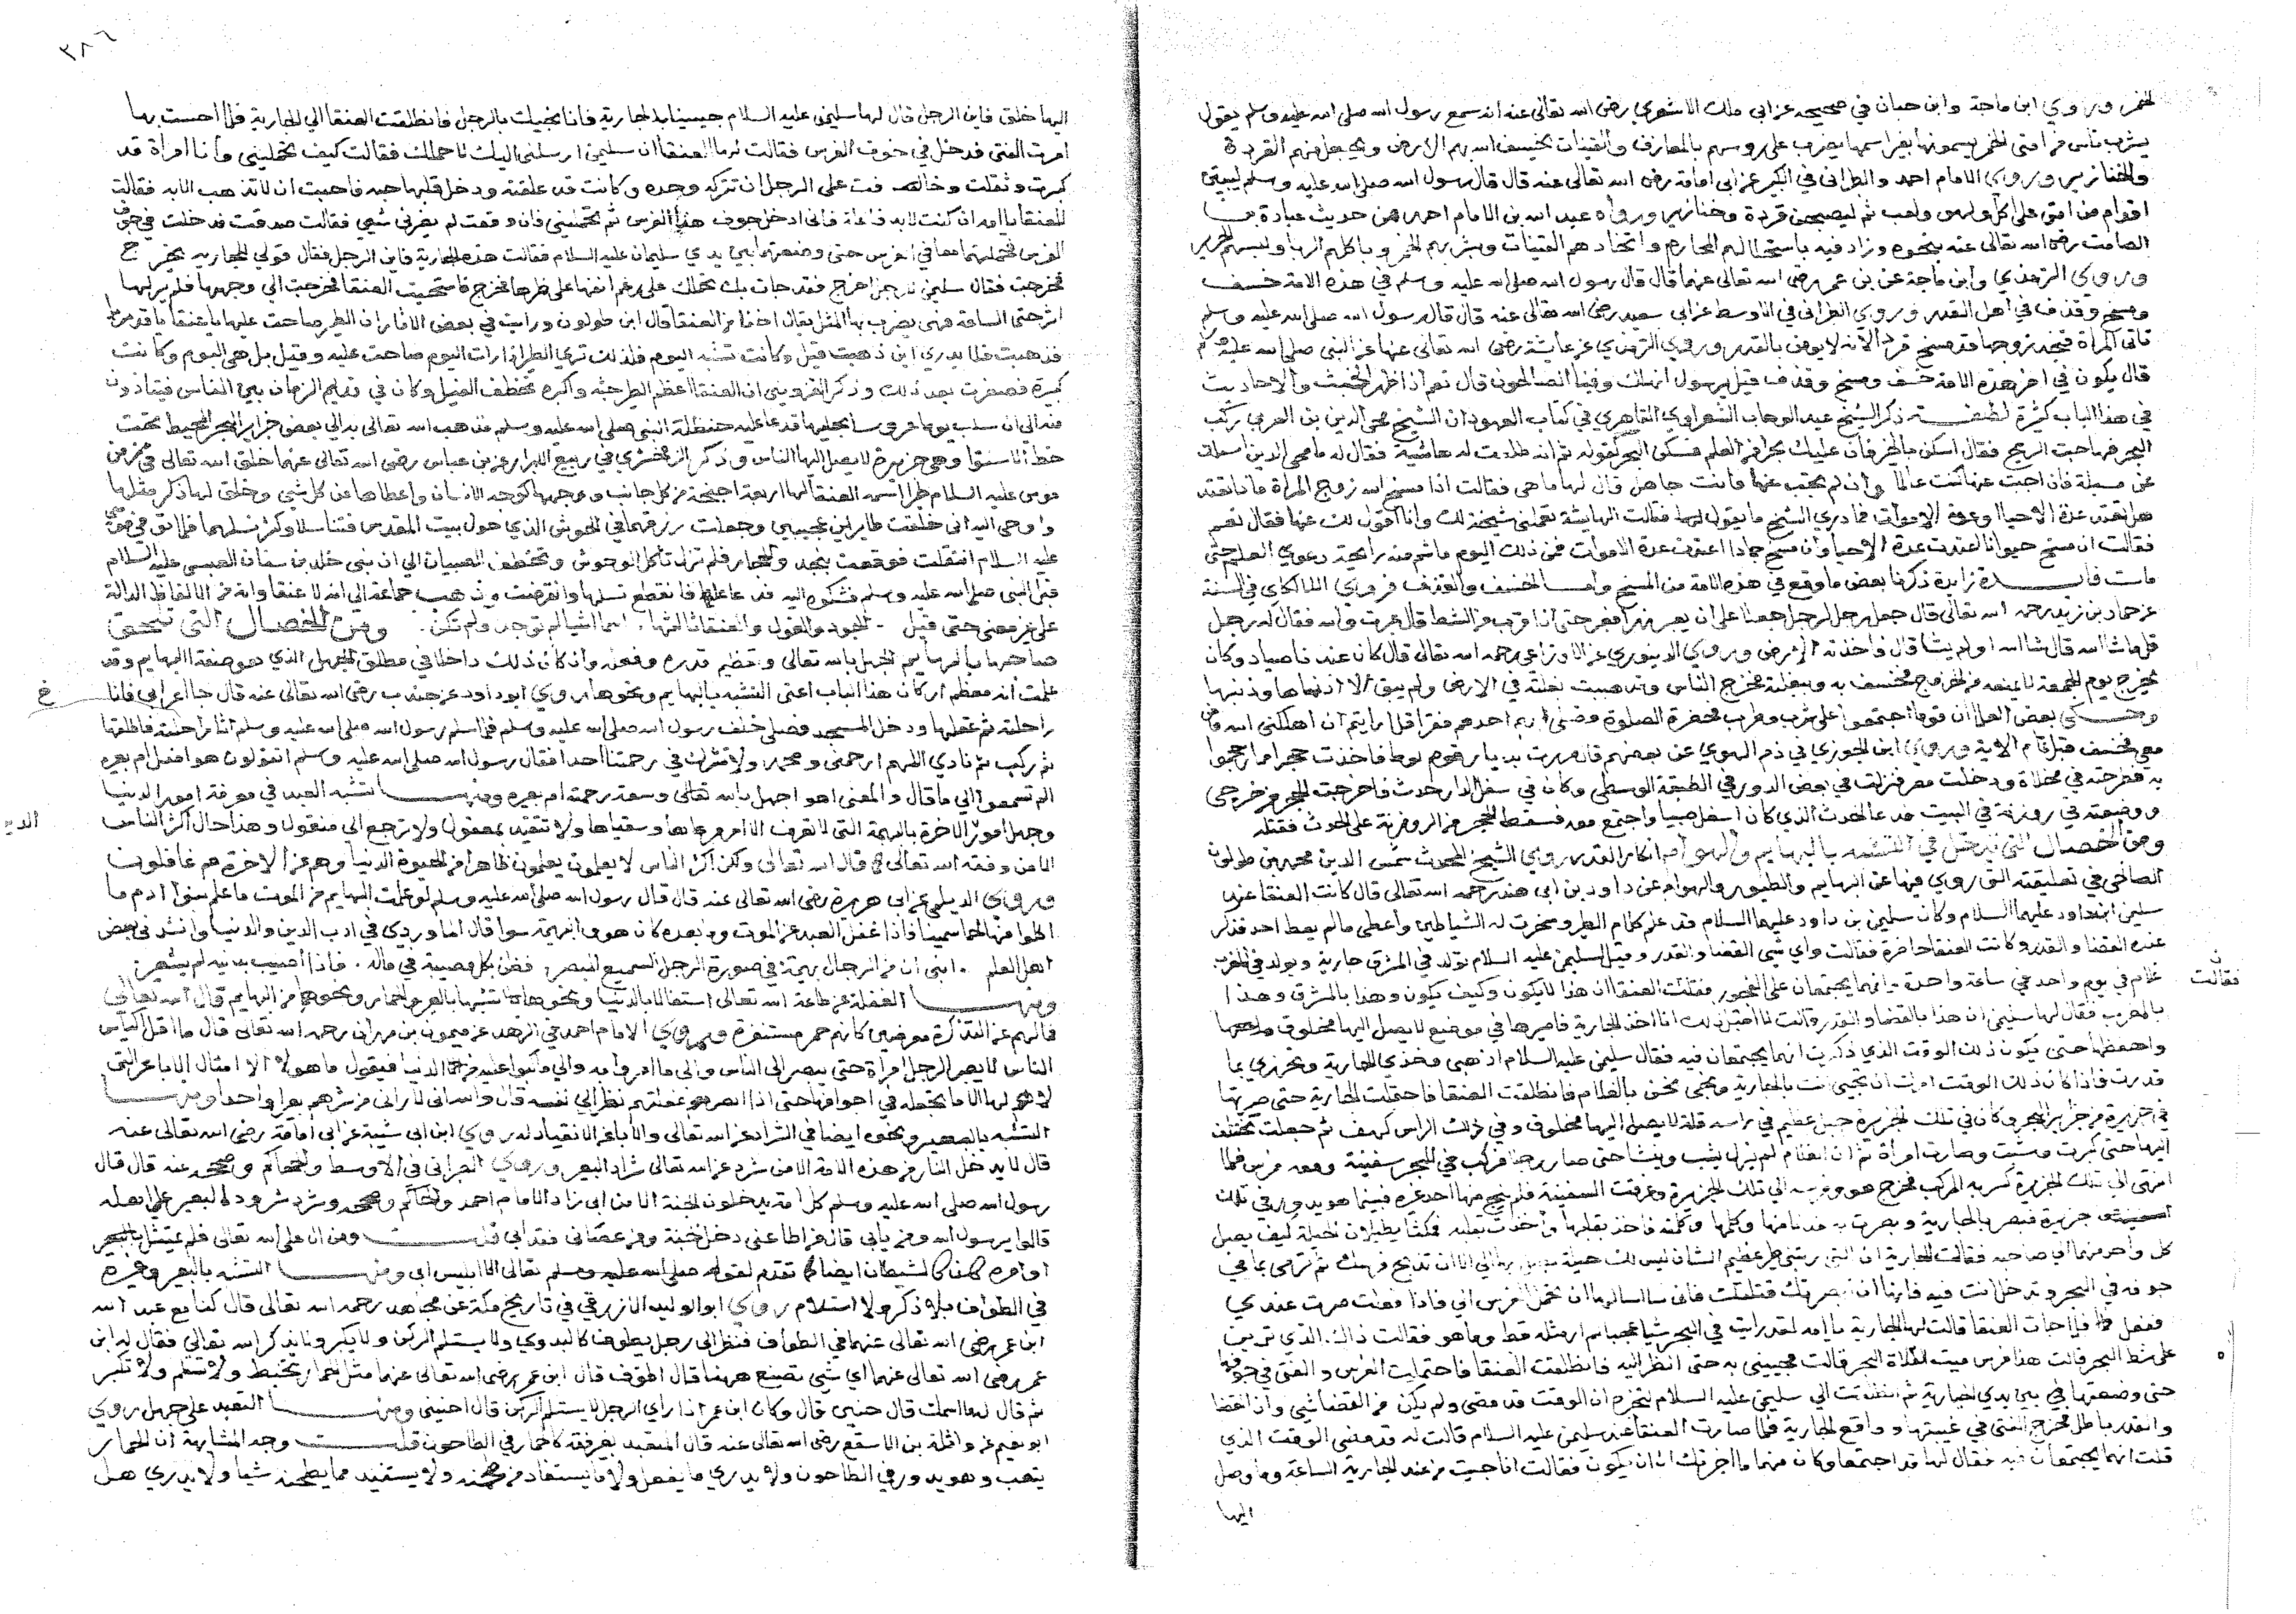 الخمر وروي ابن ماجة وابن حبان في صحيحه عن ابي ملك الاشعري رضي الله تعالى عنه انه سمع رسول الله صلى الله عليه وسلم يقول
يشرب ناس من امتي الخمر يسمونها بغير اسمها يضرب على روسهم بالمعازف والقينات يخسف الله بهم الارض ويجعل منهم القردة
والخنازير وروي الامام احمد والطبراني في الكبير عن ابي امامة رضي الله تعالى عنه قال قال رسول الله صلى الله عليه وسلم ليبيتن
اقوام من امتي على اكل ولهو ولعب ثم ليصبحن قردة وخنازير ورواه عبد الله بن الامام احمد من حديث عبادة بن
الصامت رضي الله تعالى عنه بنحوه وزاد فيه باستحلالهم المحارم واتخاذهم القينات وشربهم الخمر وباكلهم الربا ولبسهم الحرير
وروي الترمذي وابن ماجة عن بن عمر رضي الله تعالى عنهما قال قال رسول الله صلى الله عليه وسلم في هذه الامة خسف
ومسخ وقذف في اهل القدر وروي الطبراني في الاوسط عن ابي سعيد رضي الله تعالى عنه قال قال رسول الله صلى الله عليه وسلم
تاتي المراة فتجد زوجها قد مسخ قردا لانه لا يومن بالقدر وروي الترمذي عن عايشة رضي الله تعالى عنها عن النبي صلى الله عليه وسلم
قال يكون في اخر هذه الامة خسف ومسخ وقذف قيل يرسول الله انهلك وفينا الصالحون قال نعم اذا ظهر الخبث والاحاديث
في هذا الباب كثيرة لطيفة ذكر الشيخ عبد الوهاب الشعراوي القاهري في كتاب العهود ان الشيخ محي الدين بن العربي ركب
البحر فهاجت الريح فقال اسكن يا بحر فان عليك بحر من العلم فسكن البحر لقوله ثم انه طلعت له هائشة فقال له يا محي الدين اسالك
عن مسيلة فان اجبت عنها كنت عالما وان لم تجب عنها فانت جاهل قال لها ما هي فقالت اذا مسخ الله زوج المراة ماذا تعتد
هل تعتد عدة الاحيا او عدة الاموات فما دري الشيخ ما يقول لها فقالت الهايشة تجعلني شيختك وانا اقول لك عنها فقال نعم
فقالت ان مسخ حيوانا اعتدت عدة الاحيا وان مسخ جمادا اعتدت عدة الاموات فمن ذلك اليوم ما شم منه رايحة دعوي العلم حتى
مات فايدة زايدة ذكرنا بعض ما وقع في هذه الامة من المسخ واما الخسف والقذف فروي اللالكاي في السنة
عن حماد بن زيد رحمه الله تعالى قال جعل رجل لرجل جعلا على ان يعبر نهرا فعبر حتى اذا قرب من الشط قال عبرت والله فقال له رجل
قل ان شا الله قال شا الله او لم يشا قال فاخذته الارض وروي الدينوري عن الاوزاعي رحمه الله تعالى قال كان عندنا صياد وكان
يخرج يوم الجمعة لا يمنعه من الخروج فخسف به وببغلته فخرج الناس وقد ذهبت بغلته في الارض ولم يبق الا اذناها وذنبها
وحكي بعض العلما ان قوما اجتمعوا على شرب وطرب فحضرة الصلوة فصلى بهم احدهم فقرا قل ارايتم ان اهلكني الله ومن
معي فخسف قبل تمام الاية وروي ابن الجوزي في ذم الهوي عن بعضهم قال مررت بديار قوم لوط فاخذت حجرا مما رجموا
به فطرحته في مخلاة ودخلت مصر فنزلت في بعض الدور في الطبقة الوسطى وكان في سفل الدار حدث فاخرجت الحجر من خرجي
ووضعته في روزنة في البيت فدعا الحدث الذي كان اسفل صبيا واجتمع معه فسقط الحجر من الروزنة على الحدث فقتله
ومن الخصال التي تدخل في التشبه بالبهايم والهوام انكار القدر روي الشيخ المحدث شمس الدين محمد بن طولون
الصالحي في تعليقته التي روي فيها عن البهايم والطيور والهوام عن داود بن ابي هند رحمه الله تعالى قال كانت العنقا عند
سليمن بن داود عليهما السلام وكان سليمن بن داود عليهما السلام قد علم كلام الطير وسخرت له الشياطين واعطي ما لم يعط احد فذكر
عنده القضا والقدر وكانت العنقا حاضرة فقالت واي شي القضا والقدر وقيل لسليمن عليه السلام تولد في المشرق جارية ويولد في المغرب
فقالت
غلام في يوم واحد في ساعة واحدة وانهما يجتمعان على الفجور فقلت العنقا ان هذا لا يكون وكيف يكون وهذا بالمشرق وهذا
بالمغرب فقال لها سليمن ان هذا بالقضا والقدر فانت لا اقبل ذلك انا اخذ الجارية فاصيرها في موضع لا يصل اليها مخلوق
واحفظها حتى يكون ذلك الوقت الذي ذكرت انهما يجتمعان فيه فقال سليمن عليه السلام اذهبي وخذي الجارية وتحرزي بما
قدرت فاذا كان ذلك الوقت امرت ان تجيي انت بالجارية ونجي نحن بالغلام فانطلقت العنقا فاحتملت الجارية حتى صيرتها
في جزيرة من جزاير البحر وكان في تلك الجزيرة جبل عظيم في راسه قلة لا يصل اليها مخلوق وفي ذلك الراس كهف ثم جعلت تختلف
اليها حتى كبرت وشبت وصارت امراة ثم ان الغلام لم يزل يشب وينشا حتى صار رجلا فركب في البحر سفينة ومعه فرس فلما
انتهي الى تلك الجزيرة كسر به المركب فخرج هو وفرسه الى تلك الجزيرة وغرقت السفينة فلم ينج منها احد غيره فبينما هو يدور في تلك
جزيرة فبصر بالجارية وبصرت به فدنا منها وكلمها وكلمته فاخذ بقلبها واخذت بقلبه فمكثا يطلبان الحيلة كيف يصل
كل واحد منهما الى صاحبه فقالت الجارية ان التي ربتني طير عظيم الشان ليس لك حيلة الى الا ان تذبح فرسك ثم ترمي بما في
جوفه في البحر وتدخل انت فيه فانها ان ابصرتك قتلتك فاني ساسالها ان تحمل الفرس الي فاذا فعلت صرت عندي
ففعل فلما جات العنقا قالت لها الجارية يا امه لقد رايت في البحر شيا عجبا لم ار مثله قط وما هو فقالت ذلك الذي ترين
على شط البحر قالت هذا فرس ميت القاه البحر قالت فجيبيني به حتى انظر اليه فانطلقت العنقا فاحتملت الفرس والفتى في جوفه
حتى وضعتها في بين يدي الجارية ثم انطلقت الى سليمن عليه السلام لتخبره ان الوقت قد مضى ولم يكن من القضا شي وان القضا
والقدر باطل فخرج الفتى في غيبتها وواقع الجارية فلما صارت العنقا عند سليمن عليه السلام قالت له قد مضى الوقت الذي
قلت انهما يجتمعان فيه فقال لها قد اجتمعا وكان منهما ما اخبرتك ان يكون فقالت انا جيت من عند الجارية الساعة وما وصل
اليها
٣٨٦
اليها خلق فاين الرجل قال لها سليمن عليه السلام جيبينا بالجارية فانا نجيك بالرجل فانطلقت العنقا الى الجارية فلما احست بها
امرت الفتى فدخل في جوف الفرس فقالت لها العنقا ان سليمن ارسلني اليك لاحملك فقالت كيف تحمليني وانا امراة قد
كبرت وثقلت وخالفت على الرجل ان تتركه وحده وكانت قد علقته ودخل قلبها حبه فاحبت ان لا تذهب الا به فقالت
للعنقا يا امه ان كنت لا بد فاعلة فاني ادخل جوف هذا الفرس ثم تحمليني فان وقعت لم يضرني شي فقالت صدقت فدخلت في جوف
الفرس فحملتهما معا في الفرس حتى وضعتهما بين يدي سليمان عليه السلام فقالت هذه الجارية فاين الرجل فقال قولي للجارية تخرج
فخرجت فقال سليمن للرجل اخرج فقد جات بك تحملك على رغم انفها على ظهرها فخرج فاستحيت العنقا فخرجت الى وجهها فلم ير لها
اثر حتى الساعة فهي يضرب بها المثل يقال اخفا من العنقا قال ابن طولون ورايت في بعض الاثار ان الطير صاحت عليها يا عنقا يا قدرية
فذهبت فلا يدري اين ذهبت قيل وكانت تشبه اليوم فلذلك تري الطير اذا رات البوم صاحت عليه وقيل بل هي البوم وكانت
كبيرة فصغرت بعد ذلك وذكر القزويني ان العنقا اعظم الطير جثة واكبره تخطف الفيل وكان في قديم الزمان بين الناس فيتاذون
منه الى ان سلب يوما عروسا بحليها فدعا عليه حنظلة النبي صلى الله عليه وسلم فذهب الله تعالى به الى بعض جزاير البحر المحيط تحت
خط الاستوا وهي جزيرة لا يصل اليها الناس وذكر الزمخشري في ربيع الابرار عن بن عباس رضي الله تعالى عنهما خلق الله تعالى في زمن
موسى عليه السلام طيرا اسمه العنقا لها اربعة اجنحة من كل جانب ووجهها كوجه الانسان واعطاها من كل شي وخلق لها ذكر مثلها
واوحي اليه اني خلقت طايرين عجيبين وجعلت رزقهما في الوحوش الذي حول بيت المقدس فتناسلا وكثر نسلهما فلما توفي موسى
عليه السلام انتقلت فوقعت بنجد والحجاز فلم تزل تاكل الوحوش وتخطف الصبيان الى ان نبي خالد بن سنان العبسي عليه السلام
قبل النبي صلى الله عليه وسلم فشكوها اليه فدعا عليها فانقطع نسلها وانقرضت وذهب جماعة الى انه لا عنقا وانه من الالفاظ الدالة
على غير معنى حتى قيل الجود والغول والعنقا ثالثها اسما اشيا لم توجد ولم تكن ومن الخصال التي تلحق
صاحبها بالبهايم الجهل بالله تعالى وعظيم قدره وفعله وان كان ذلك داخلا في مطلق الجهل الذي هو صفة البهايم وقد
علمت انه معظم اركان هذا الباب اعني التشبه بالبهايم ونحوها روي ابو داود عن جندب رضي الله تعالى عنه قال جا اعرابي فاناخ
راحلته ثم عقلها ودخل المسجد فصلى خلف رسول الله صلى الله عليه وسلم فلما سلم رسول الله صلى الله عليه وسلم اتى راحلته فاطلقها
ثم ركب ثم نادي اللهم ارحمني ومحمدا ولا تشرك في رحمتنا احدا فقال رسول الله صلى الله عليه وسلم اتقولون هو اضل ام بعيره
الم تسمعوا الى ما قال والمعنى اهو اجهل بالله تعالى وسعة رحمته ام بعيره ومنها تشبه العبد في معرفة امور الدنيا
وجهل امور الاخرة بالبهيمة التي لا تعرف الا امر مرعاها وسقياها ولا تتقيد بمعقول ولا ترجع الى منقول وهذا حال اكثر الناس
الا من وفقه الله تعالى قال الله تعالى ولكن اكثر الناس لا يعلمون يعلمون ظاهرا من الحيوة الدنيا وهم عن الاخرة هم غافلون
وروي الديلمي عن ابي هريرة رضي الله تعالى عنه قال قال رسول الله صلى الله عليه وسلم لو علمت البهايم من الموت ما علم بنوا ادم ما
اكلوا منها لحما سمينا فاذا غفل العبد عن الموت وما بعده كان هو والبهيمة سوا قال الماوردي في ادب الدين والدنيا وانشدني بعض
اهل العلم ابني ان من الرجال بهيمة في صورة الرجل السميع المبصر فطن بكل مصيبة في ماله فاذا اصيب بدينه لم يشعر
ومنها الغفلة عن طاعة الله تعالى اشتغالا بالدنيا ونحوها تشبها بالبعير والحمار ونحوهما من البهايم قال الله تعالى
فما لهم عن التذكرة معرضين كانهم حمر مستنفرة وروي الامام احمد في الزهد عن ميمون بن مهران رحمه الله تعالى قال ما اقل اكياس
الناس لا يبصر الرجل امراة حتى يبصر الى الناس والى ما امروا به والى ما كبوا عليه من الدنيا فيقول ما هولا الا امثال الاباعر التي
لا هم لها الا ما تجعله في اجوافها حتى اذا ابصر غفلتهم نظر الى نفسه قال والله اني لاراني من شرهم بعيرا واحدا ومنها
التشبه بالبعير ونحوه ايضا في الشراد عن الله تعالى والاباعر الانقياد له روي ابن ابي شيبة عن ابي امامة رضي الله تعالى عنه
قال لا يدخل النار من هذه الامة الا من شرد عن الله تعالى شراد البعير وروي الطبراني في الاوسط والحاكم وصححه عنه قال قال
رسول الله صلى الله عليه وسلم كل امة يدخلون الجنة الا من ابى زاد الامام احمد والحاكم وصححه وشرد شرود البعير على اهله
قالوا يرسول الله ومن يابى قال من اطاعني دخل الجنة ومن عصاني فقد ابى قلت ومن ال على الله تعالى فلم يمتثل
اوامره كان كالشيطان ايضا كما تقدم لقوله تعالى الا ابليس ابى ومنها التشبه بالبعير وغيره
في الطواف بلا ذكر ولا استلام روي ابو الوليد الازرقي في تاريخ مكة عن مجاهد رحمه الله تعالى قال كنا مع عبد الله
ابن عمر رضي الله تعالى عنهما في الطواف فنظر الى رجل يطوف كالبدوي ولا يستلم الركن ولا يكبر ولا يذكر الله تعالى فقال له ابن
عمر رضي الله تعالى عنهما اي شي تصنع ههنا قال اطوف قال ابن عمر رضي الله تعالى عنهما مثل الحمار تخبط ولا تستلم ولا تكبر
ثم قال له ما اسمك قال حنين قال وكان ابن عمر اذا راي الرجل لا يستلم الركن قال احنيني ومنها التعبد على جهل روي
ابو نعيم عن واثلة بن الاسقع رضي الله تعالى عنه قال المتعبد بغير فقه كالحمار في الطاحون قلت وجه المشابهة ان الحمار
يتعب وهو يدور في الطاحون ولا يدري ما يفعل ولا ما يستفاد من طحنه ولا يستفيد مما يطحنه شيا ولا يدري هل